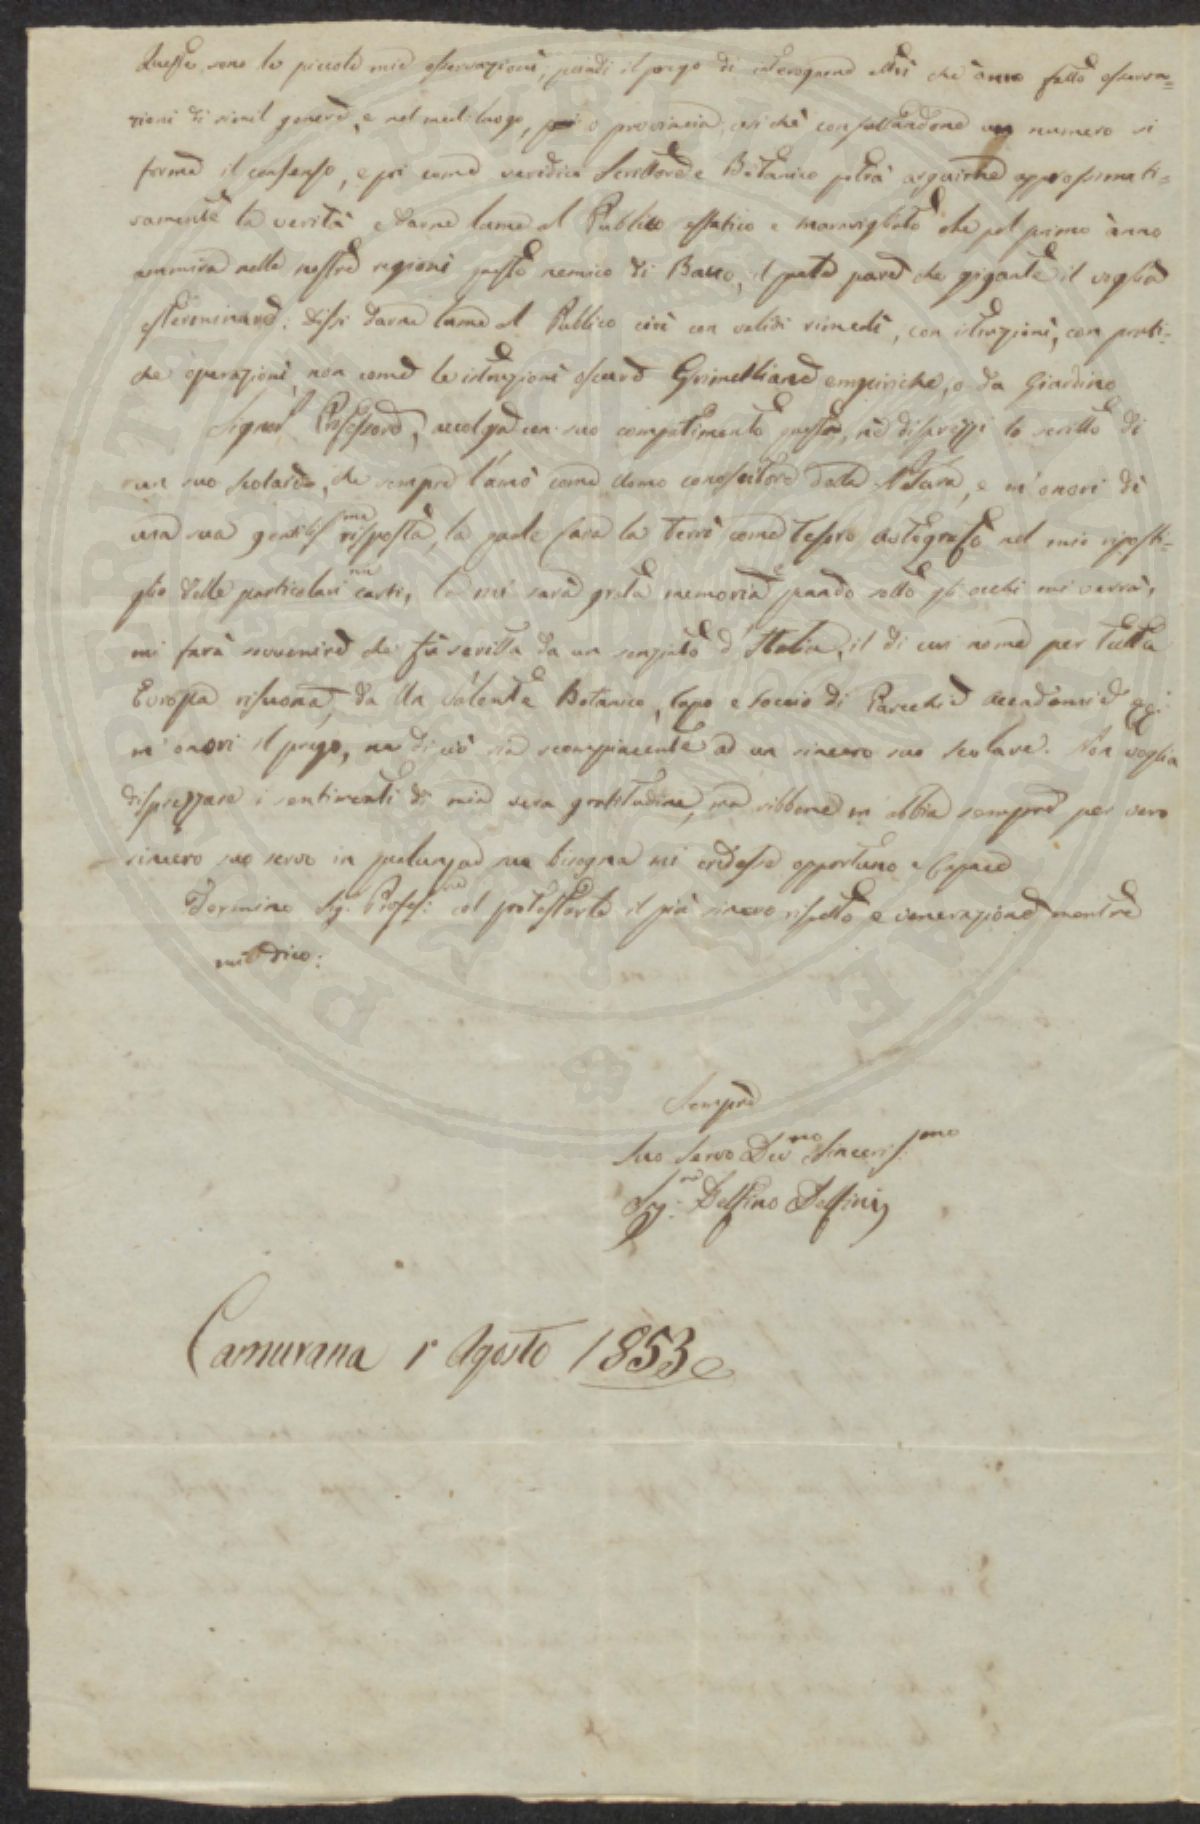 Queste sono le piccole mie osservazioni; quindi il prego di interogarne altri che ànno fatto osserva=
zioni di simil genere, e nel med: luogo, o provincia, così che consultandone un numero si
forma il consenso, e poi come veridico Scrittore e Botanico potrà arguirne approssimati=
vamente la verità e darne lume al Publico estatico e maravigliato che pel primo ànno
ammira nelle nostre regioni questo nemico di Bacco, il quale pare che gigante il voglia
esterminare: dissi darne lume al Publico cioè con validi rimedi, con istruzioni, con prati=
che operazioni, non come le istruzioni oscure Grimelliane empiriche, o da Giardino
Signor Professore, accolga con suo compatimento questa, nè disprezzi lo scritto di
un suo scolaro, che sempre l'amò come uomo conoscitore della Natura, e m'onori di
una sua gentilis.ma risposta, la quale sarà la terrò come tesoro autografo nel mio riposti=
glio delle particolari carti, e mi sarà grata memoria e quando sotto gli occhi mi verrà,
mi farà sovvenire che fù scritta da un scenziato d'Italia, il di cui nome per tutta
Europa risuona, da Un Valente Botanico, Capo e Soccio di Parecchie Accademie
m'onori il prego, ne di ciò sia scompiacente ad un sincero suo scolare. Non voglia
disprezzare i sentimenti di mia vera gratitudine, ma sibbene m'abbia sempre per vero
sincero suo servo in qualunque sua bisogna mi credesse opportuno e Capace
Termino Sig.r Profess:re col protestarle il più sincero rispetto e venerazione mentre
mi dico:
Sempre
Suo Servo Dev.mo Sinceris.mo
Sig.re Delfino Delfini
Camurana 1° Agosto 1853